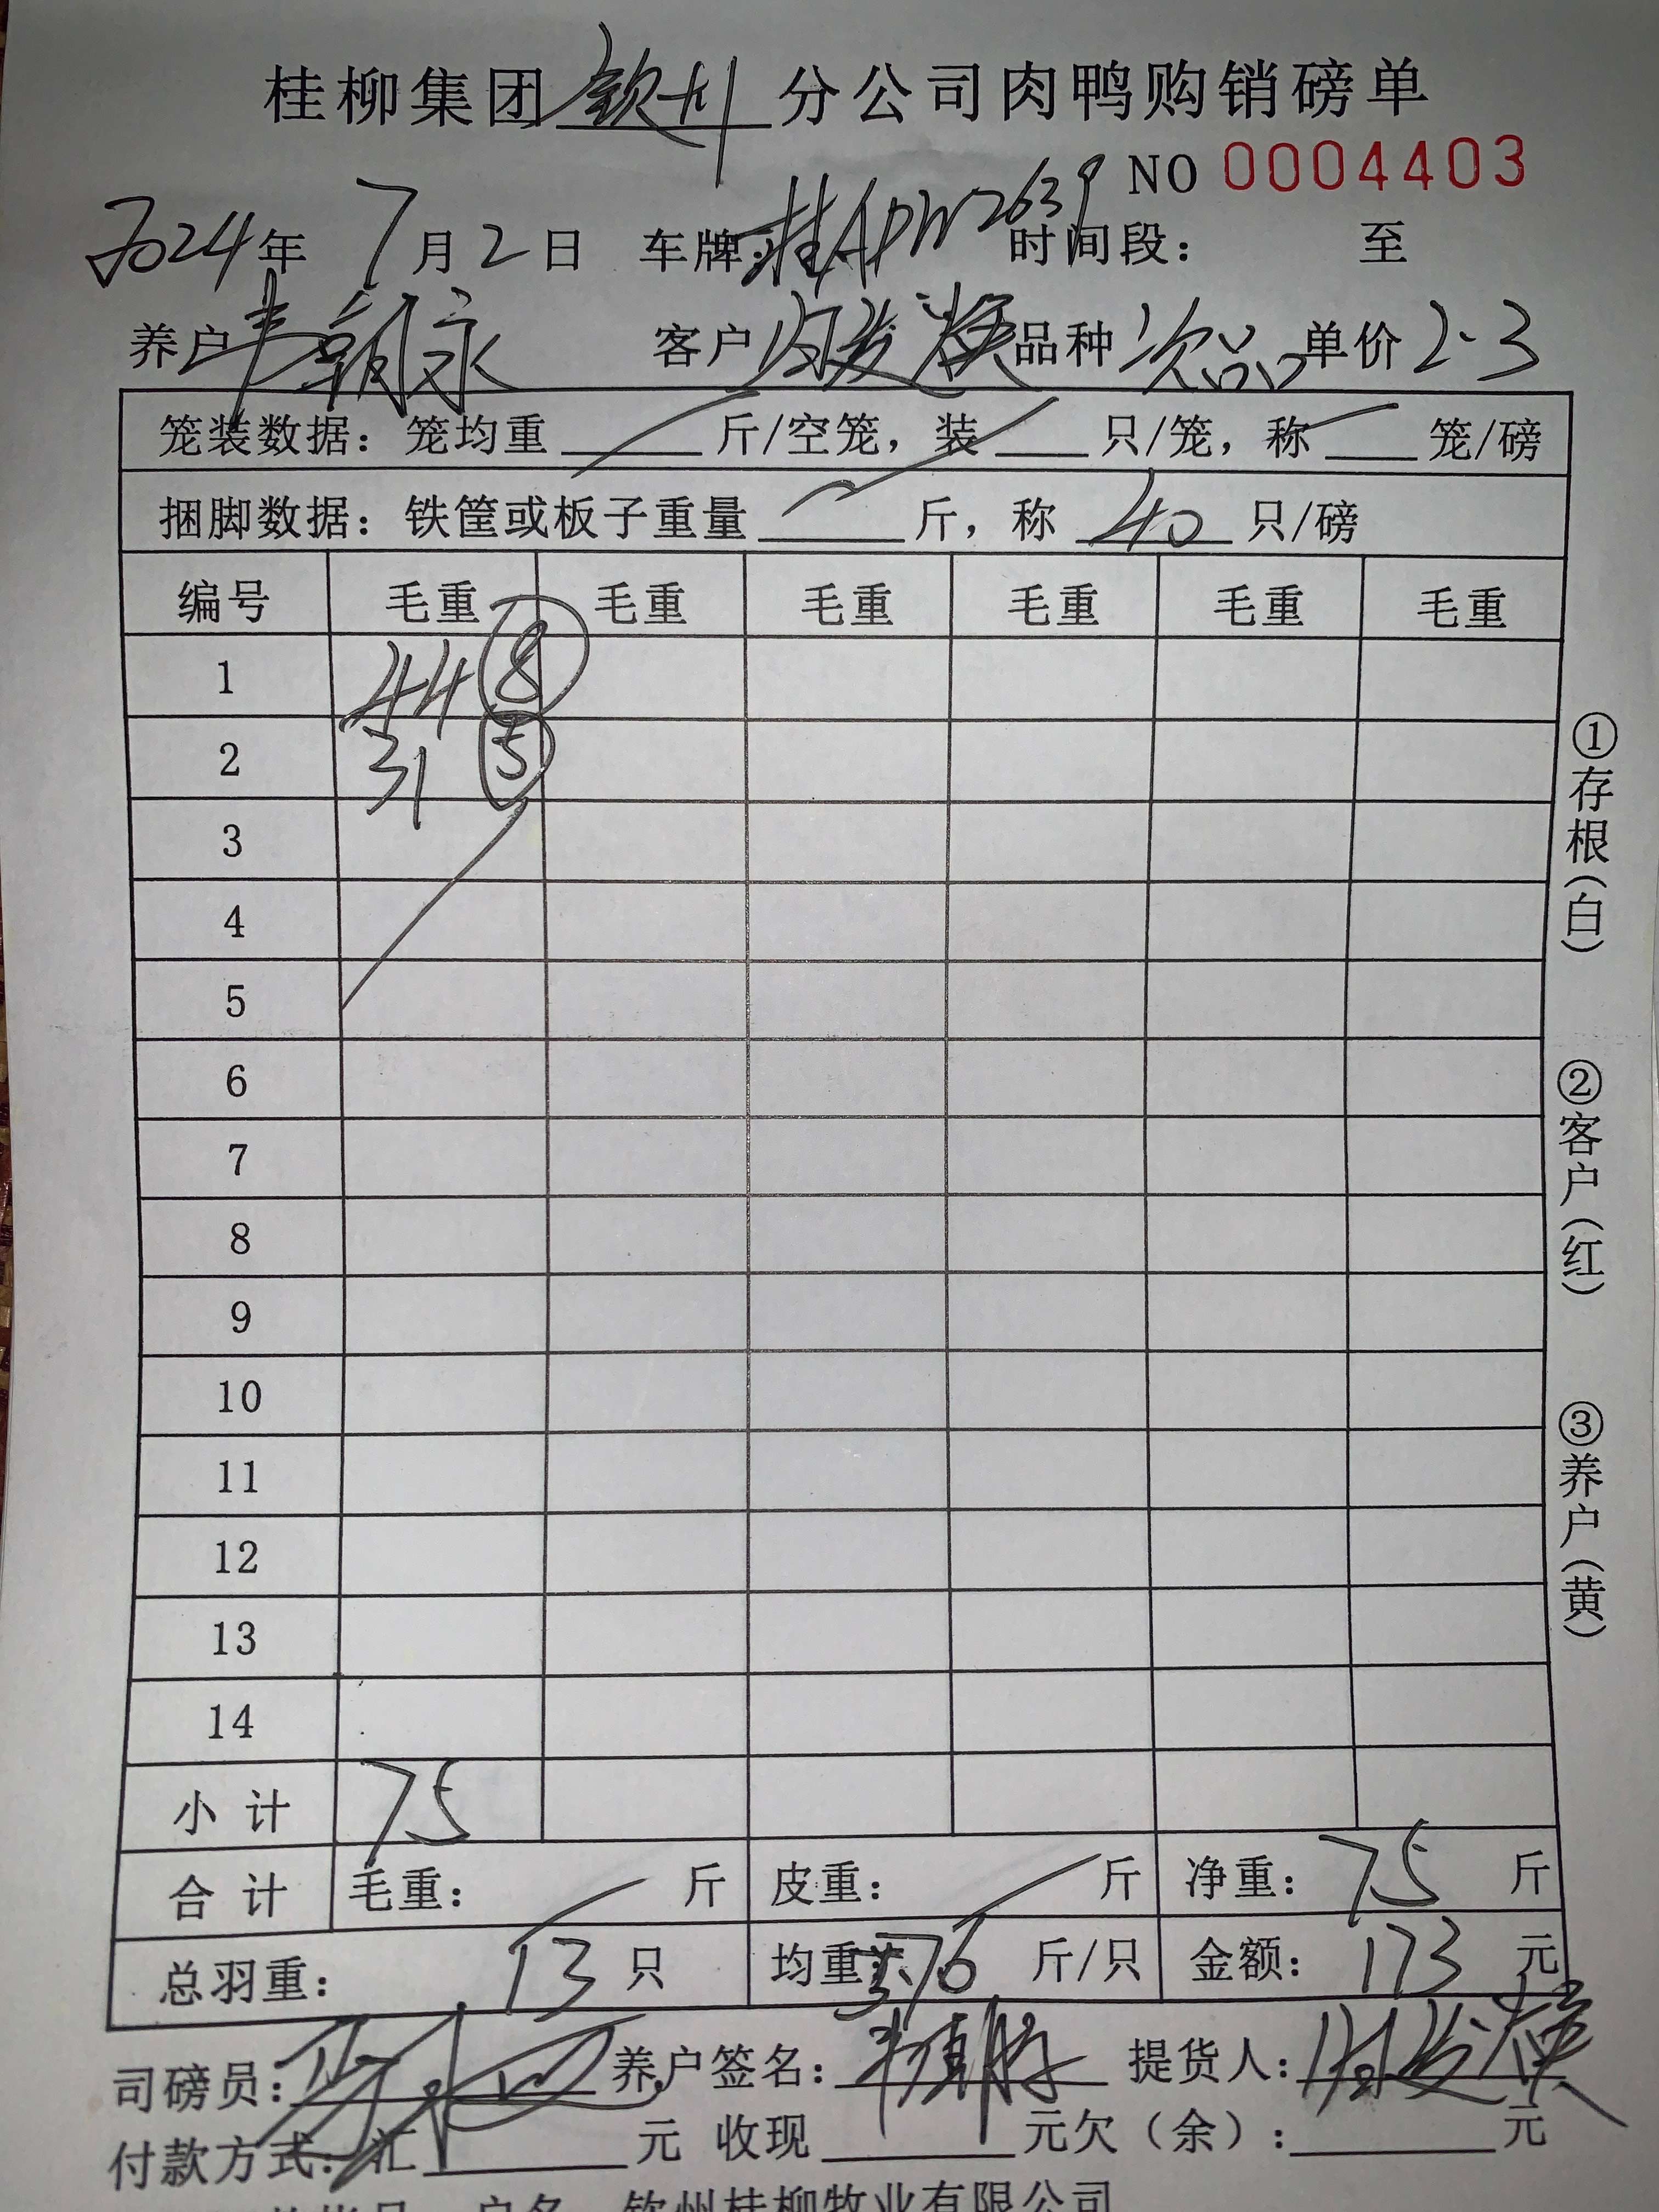 桂柳集团 钦州 分公司肉鸭购销磅单
NO 0004403
2024年 7月2日 车牌:桂APW2639 时间段: 至
养户 韦朝永 客户 发 品种 次品 单价 2.3
笼装数据: 笼均重 斤/空笼, 装 只/笼, 称 笼/磅
捆脚数据: 铁筐或板子重量 斤, 称 40 只/磅
编号 毛重 毛重 毛重 毛重 毛重 毛重
1 44 8
2 31 5
3
4
5
6
7
8
9
10
11
12
13
14
小计 75
合计 毛重: 斤 皮重: 斤 净重: 75 斤
总羽重: 13 只 均重: 5.76 斤/只 金额: 173 元
司磅员: 养户签名: 提货人:
付款方式: 汇 元 收现 元欠(余): 元
户名 钦州桂柳牧业有限公司
①存根(白)
②客户(红)
③养户(黄)